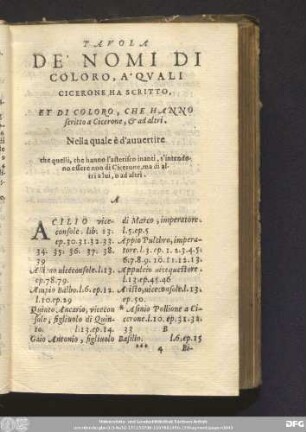 TAVOLA
DE' NOMI DI
COLORO, A' QVALI
CICERONE HA SCRITTO,
ET DI COLORO, CHE HANNO
scritto a Cicerone, & ad altri.
Nella quale è d'auuertire
che quelli, che hanno l'asterisco inanzi, s'intendo-
no essere non di Cicerone, ma di al-
tri a lui, o ad altri.
A
ACILIO vice-
consule. lib. 13.
ep. 30. 31. 32. 33.
34. 35. 36. 37. 38.
39
ep. 78. 79.
l. 10. ep. 29
Quinto, Ancario, vicecon
sule, figliuolo di Quin-
to. l. 13. ep. 14.
Gaio Antonio, figliuolo
di Marco, imperatore.
l. 5. ep. 5
Appio Pulchro, impera-
tore. l. 3. ep. 1. 2. 3. 4. 5.
6. 7. 8. 9. 10. 11. 12. 13.
Appuleio vicequestore.
l. 13. ep. 45. 46
ep. 50.
* Asinio Pollione a Ci-
cerone. l. 10. ep. 31. 32.
33
B
Basilio. l. 6. ep. 15
*** 4 Bi-
DFG